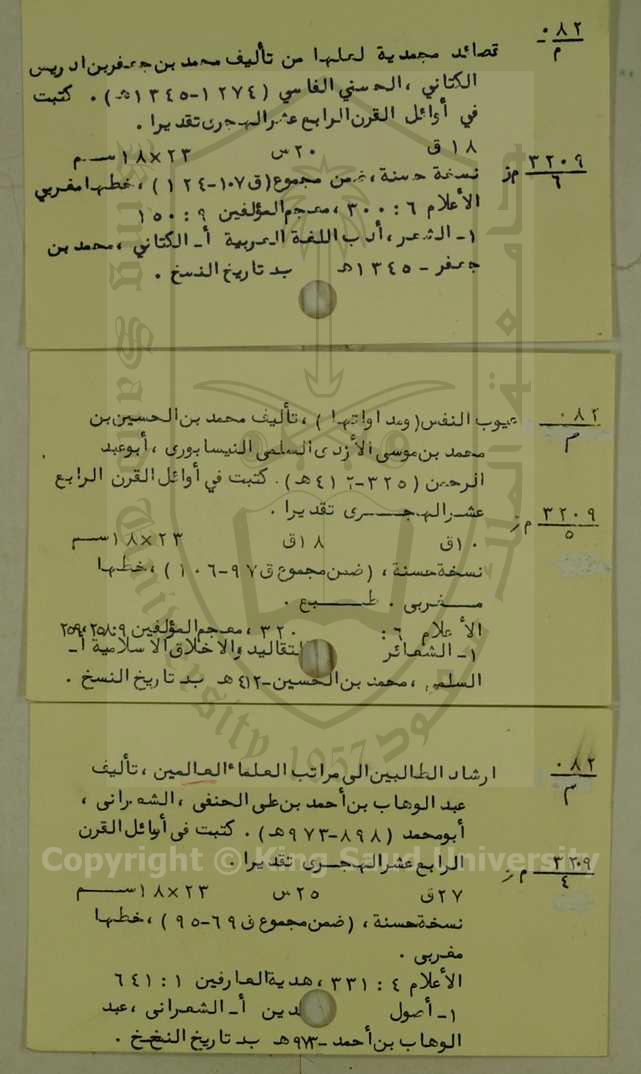 ٠٨٢
م
قصائد مجمدية لعلها من تأليف محمد بن جعفر بن ادريس
الكتاني ، الحسني الفاسي (١٢٧٤-١٣٤٥هـ) . كتبت
في أوائل القرن الرابع عشر الهجرى تقديرا .
١٨ ق ٢٠ س ٢٣×١٨ سم
٣٢٠٩
٦
م ز
نسخة حسنة ، ضمن مجموع (ق ١٠٧-١٢٤) ، خطها مغربي
الأعلام ٦ : ٣٠٠ ، معجم المؤلفين ٩ : ١٥٠
١- الشعر ، أدب اللغة العربية أ- الكتاني ، محمد بن
جعفر - ١٣٤٥هـ بـ تاريخ النسخ .
٠٨٢
م
عيوب النفس (ومداواتها) ، تأليف محمد بن الحسين بن
محمد بن موسى الأزدى السلمى النيسابورى ، أبو عبد
الرحمن (٣٢٥-٤١٢هـ) . كتبت في أوائل القرن الرابع
عشر الهجـــرى تقديرا .
٣٢٠٩
٥
م ز
١٠ ق ١٨ ق ٢٣×١٨ سم
نسخة حسنة ، (ضمن مجموع ق ٩٧-١٠٦) ، خطها
مغربى . طبع .
الأعلام ٦ : ٣٢٠ ، معجم المؤلفين ٩ : ٢٥٨، ٢٥٩
١- الشعائر التقاليد والاخلاق الاسلامية أ-
السلمى ، محمد بن الحسين - ٤١٢هـ بـ تاريخ النسخ .
٠٨٢
م
ارشاد الطالبين الى مراتب العلماء العالمين ، تأليف
عبد الوهاب بن أحمد بن على الحنفى ، الشعرانى ،
أبو محمد (٨٩٨-٩٧٣هـ) . كتبت فى أوائل القرن
الرابع عشر الهجـرى تقديرا .
٣٢٠٩
٤
م ز
٢٧ ق ٢٥ س ٢٣×١٨ سم
نسخة حسنة ، (ضمن مجموع ق ٦٩-٩٥) ، خطها
مغربى .
الأعلام ٤ : ٣٣١ ، هدية العارفين ١ : ٦٤١
١- أصول الدين أ- الشعرانى ، عبد
الوهاب بن أحمد - ٩٧٣هـ بـ تاريخ النخخ .
Copyright © King Saud University
جامعة الملك سعود
King Saud University
1957